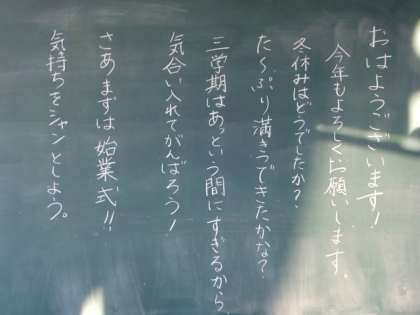 おはようございます!
今年もよろしくお願いします。
冬休みはどうでしたか?
た〜ぷり満きつできたかな?
三学期はあっという間にすぎるから
気合い入れてがんばろう!
さあまずは始業式!!
気持ちをシャンとしよう。